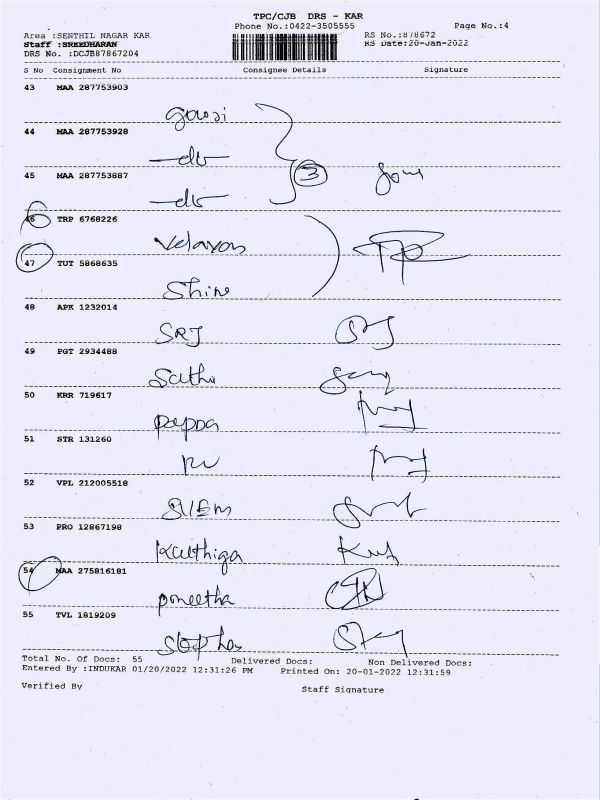 TPC/CJB DRS - KAR
Phone No.:0422-3505555 Page No.:4
Area :SENTHIL NAGAR KAR RS No.:878672
Staff :SREEDHARAN RS Date:20-Jan-2022
DRS No. :DCJB87867204
S No Consignment No Consignee Details Signature
43 MAA 287753903
gowri
44 MAA 287753928
-do-
45 MAA 287753887 3
-do-
46 TRP 6768226
47 TUT 5868635
Shine
48 APK 1232014
SRJ
49 PGT 2934488
Sathi
50 KRR 719617
pappa
51 STR 131260
52 VPL 212005518
53 PRO 12867198
Kaithiga
54 MAA 275816181
poneetha
55 TVL 1819209
Total No. Of Docs: 55 Delivered Docs: Non Delivered Docs:
Entered By :INDUKAR 01/20/2022 12:31:26 PM Printed On: 20-01-2022 12:31:59
Verified By Staff Signature